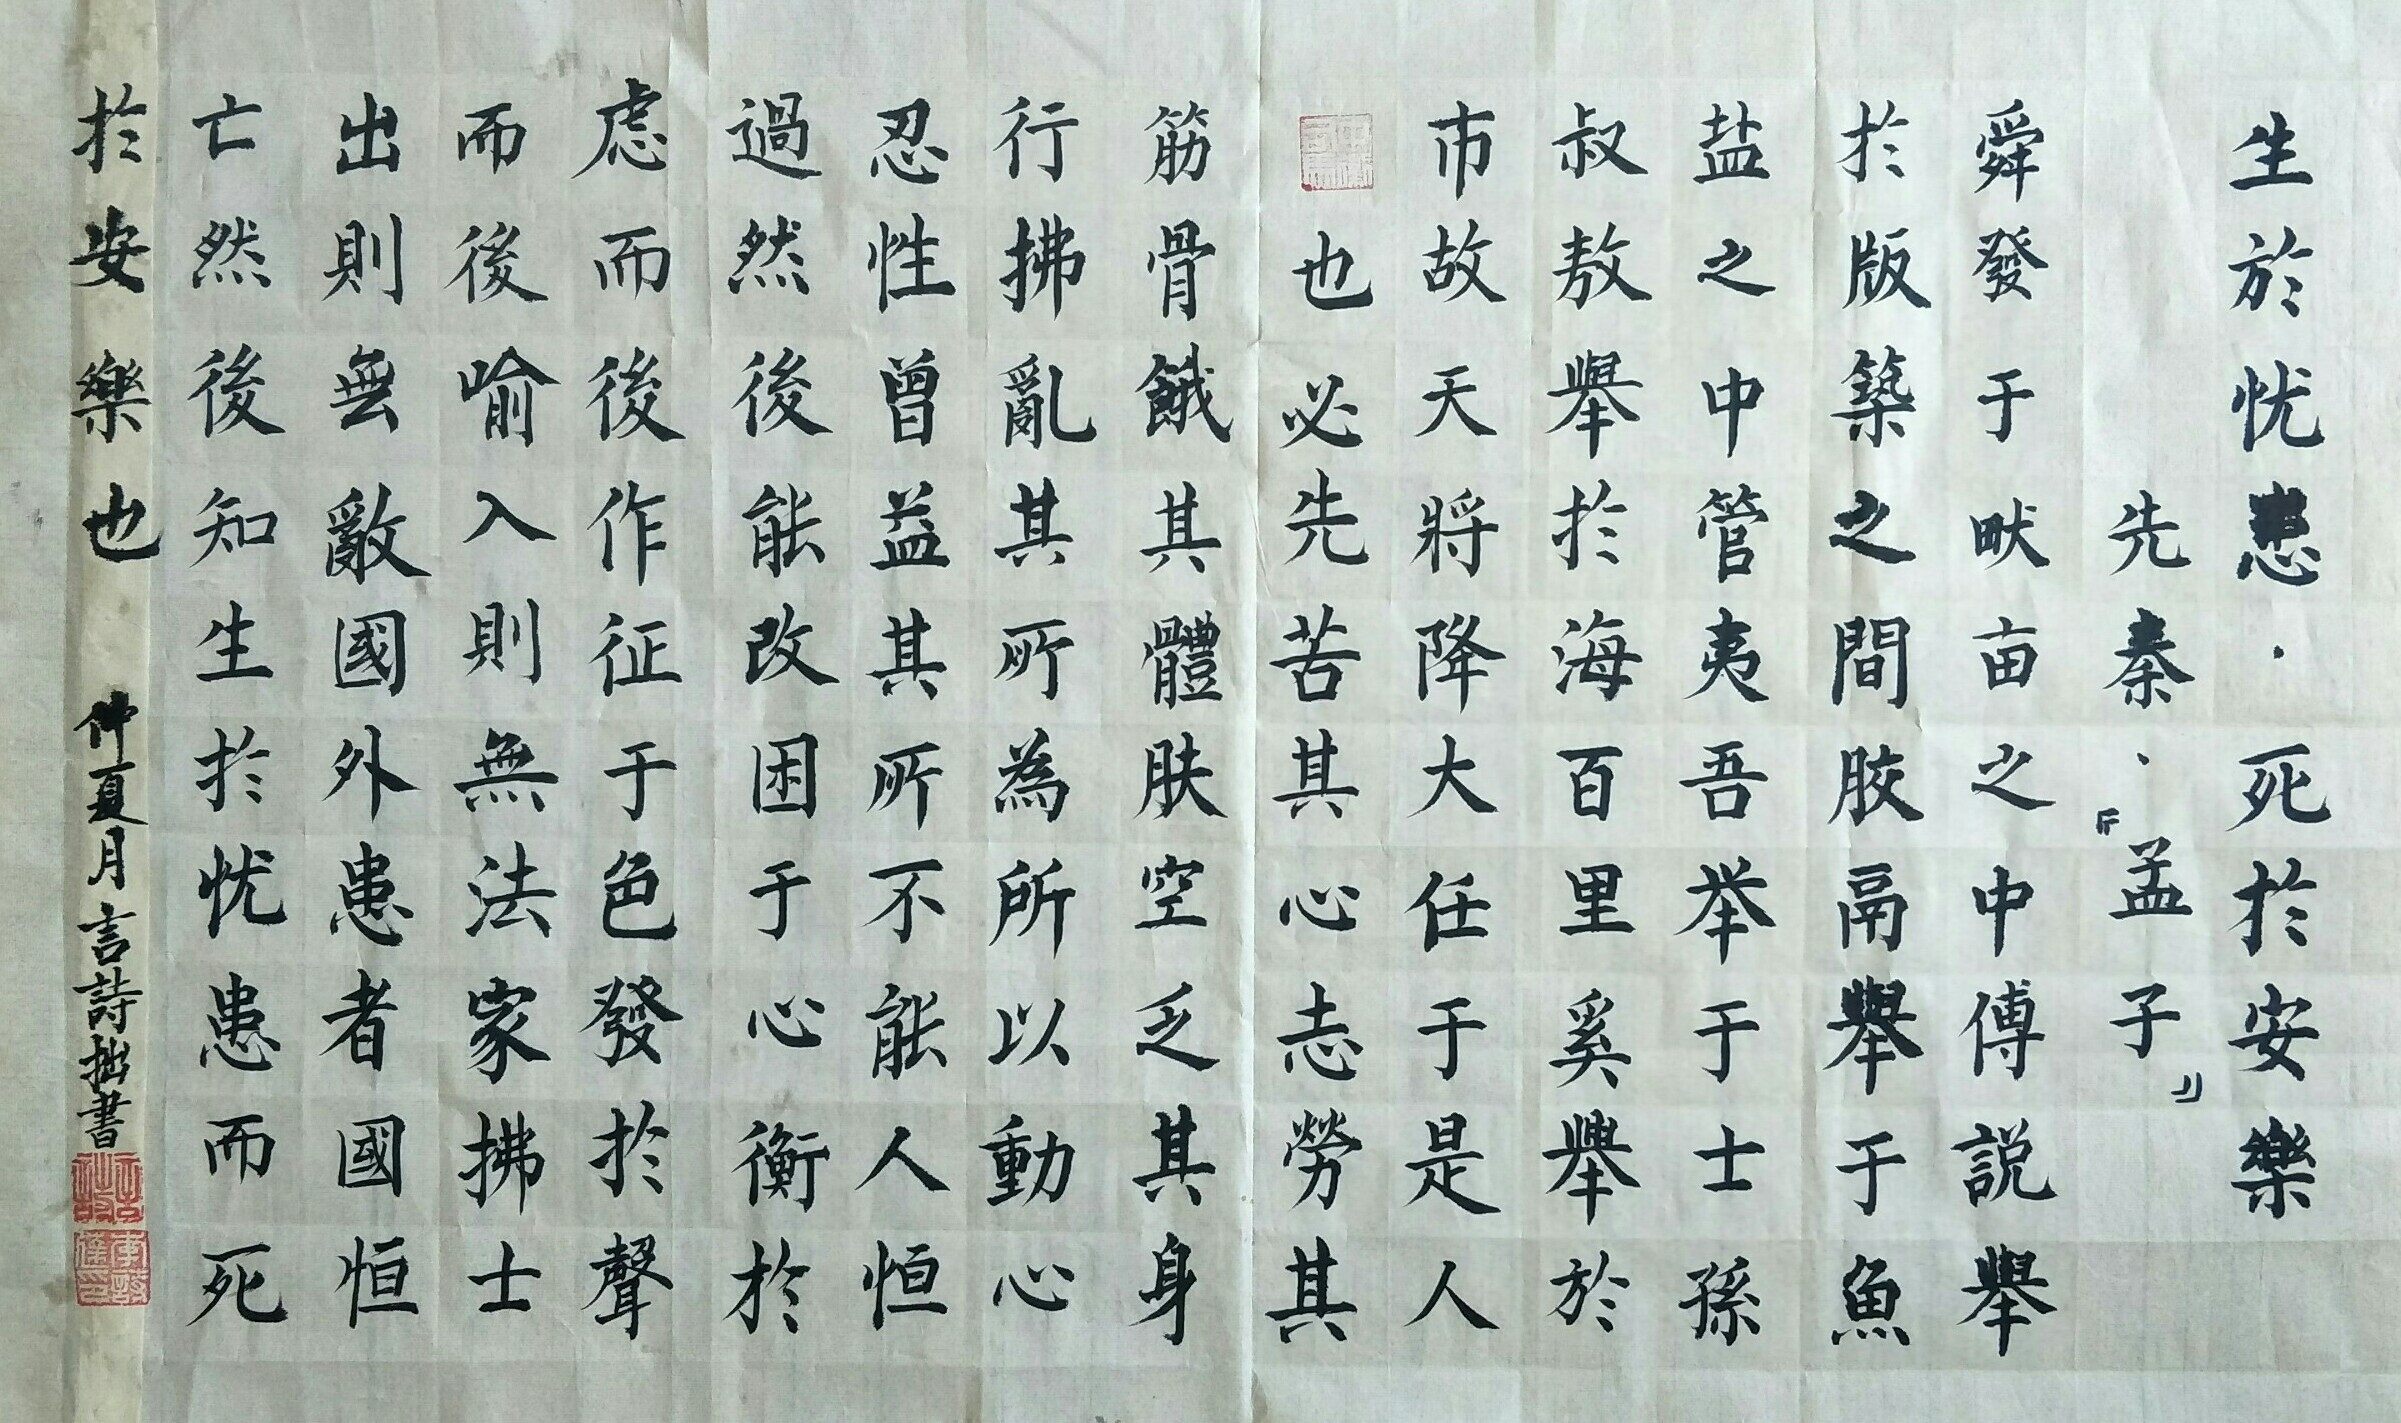 生於忧患·死於安樂
先秦·『孟子』
舜發于畎亩之中傅説舉
於版築之間胶鬲舉于魚
盐之中管夷吾举于士孫
叔敖舉於海百里奚舉於
市故天將降大任于是人
也必先苦其心志勞其
筋骨餓其體肤空乏其身
行拂亂其所為所以動心
忍性曾益其所不能人恒
過然後能改困于心衡於
虑而後作征于色發於聲
而後喻入則無法家拂士
出則無敵國外患者國恒
亡然後知生於忧患而死
於安樂也 仲夏月言詩拙書